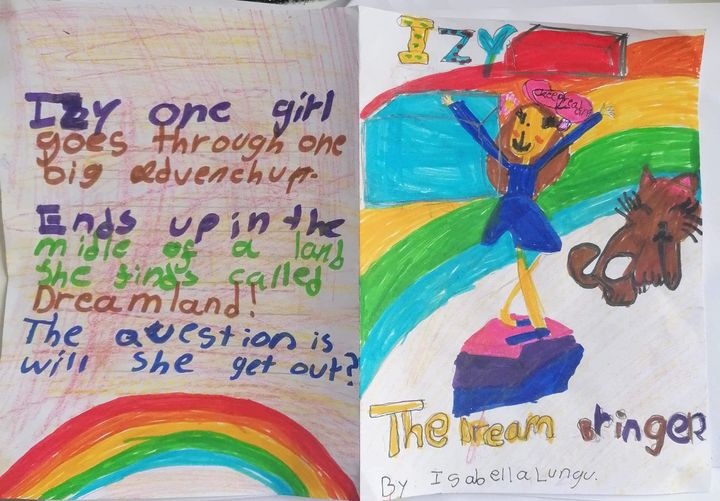 Izy one girl
goes through one
big advenchur.
Ends up in the
midle of a land
she finds called
Dreamland!
The question is
will she get out?
IZY
The Dream bringer
By Isabella Lungu.